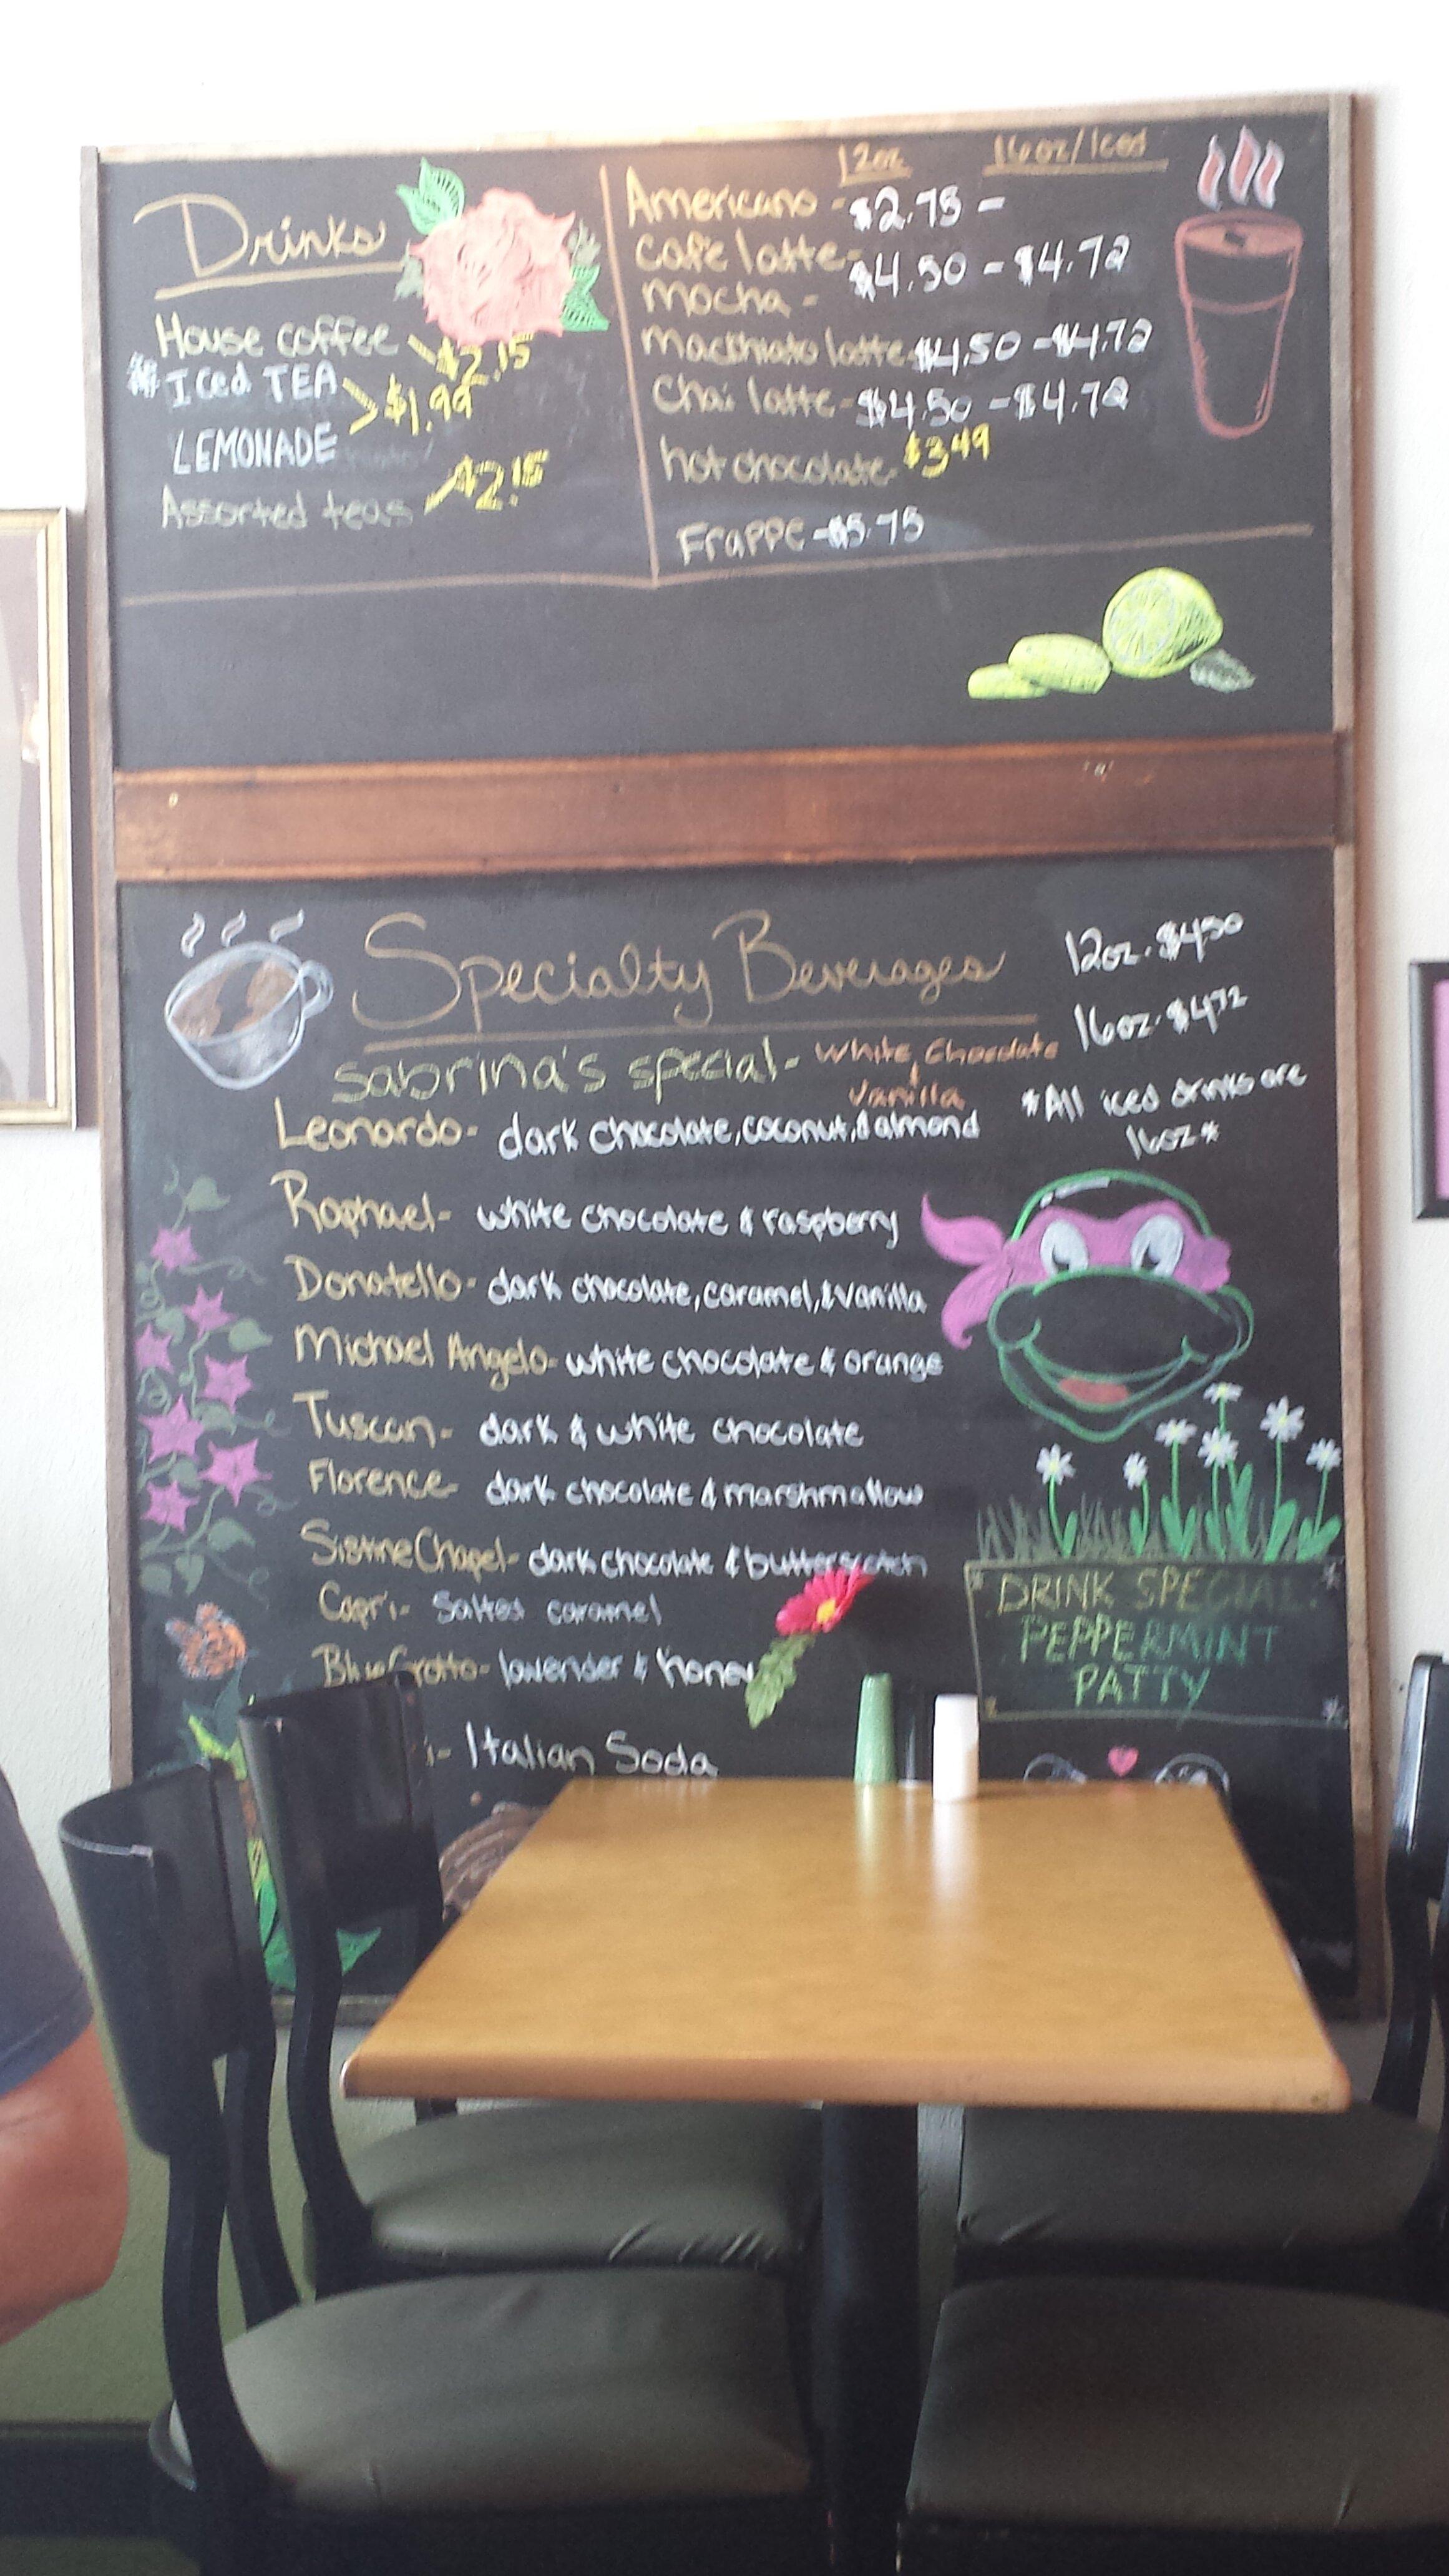 Drinks
House coffee $2.15
Iced TEA
LEMONADE > $1.99
Assorted teas $2.15
12oz 16oz/Iced
Americano - $2.75 -
Cafe latte -
Mocha - $4.50 - $4.72
Macchiato latte $4.50 - $4.72
Chai latte - $4.50 - $4.72
hot chocolate - $3.49
Frappe - $5.75
Specialty Beverages
12oz. $4.50
16oz. $4.72
*All iced drinks are
16oz*
sabrina's special - White Chocolate
+
Vanilla
Leonardo - dark chocolate, coconut, & almond
Raphael - white chocolate & raspberry
Donatello - dark chocolate, caramel, & vanilla
Michael Angelo - white chocolate & orange
Tuscan - dark & white chocolate
Florence - dark chocolate & marshmallow
Sistine Chapel - dark chocolate & butterscotch
Capri - Salted caramel
Blue Grotto - lavender & honey
- Italian Soda
DRINK SPECIAL:
PEPPERMINT
PATTY